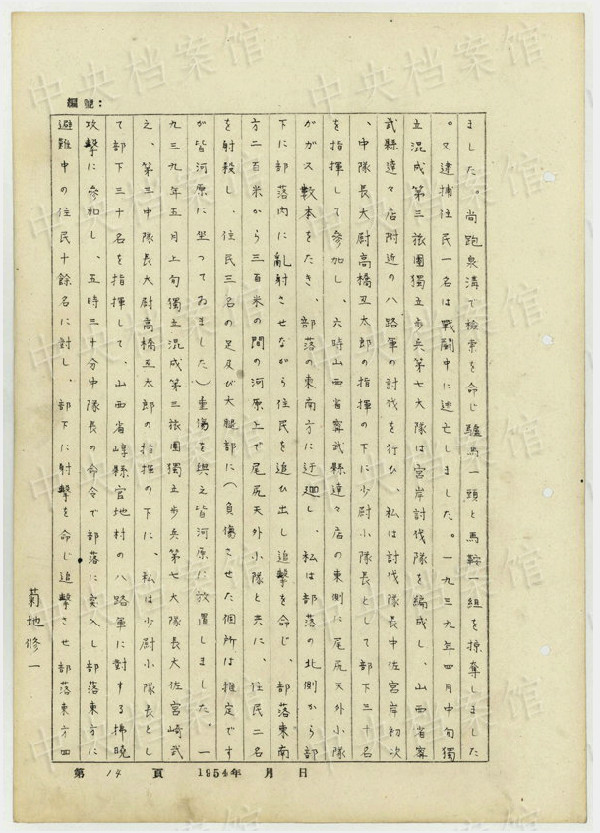 編號：
ました。尚跑泉溝で検索を命じ驢馬一頭と馬鞍一組を掠奪しました
。又逮捕住民一名は戰闘中に逃亡しました。一九三九年四月中旬獨
立混成第三旅團獨立步兵第七大隊は宮岸討伐隊を編成し、山西省寧
武縣達々店附近の八路軍の討伐を行ひ、私は討伐隊長中佐宮岸初次
、中隊長大尉高橋互太郎の指揮の下に少尉小隊長として部下三十名
を指揮して参加し、六時山西省寧武縣達々店の東側に尾尻天外小隊
がガス数本をたき、部落の東南方に迂廻し、私は部落の北側から部
下に部落内に亂射させながら住民を追ひ出し追擊を命じ、部落東南
方二百米から三百米の間の河原上で尾尻天外小隊と共に、住民二名
を射殺し、住民三名の足及び大腿部に（負傷させた個所は推定です
が皆河原に坐っておました）重傷を與え皆河原に放置しました。一
九三九年五月上旬獨立混成第三旅團獨立步兵第七大隊長大佐宮崎武
之、第三中隊長大尉高橋互太郎の指揮の下に、私は少尉小隊長とし
て部下三十名を指揮して、山西省崞縣官地村の八路軍に對する拂曉
攻擊に参加し、五時三十分中隊長の命令で部落に突入し部落東方に
避難中の住民十餘名に対し、部下に射擊を命じ追擊させ部落東方四
菊地修一
第 14 頁 1954年 月 日
中央档案馆